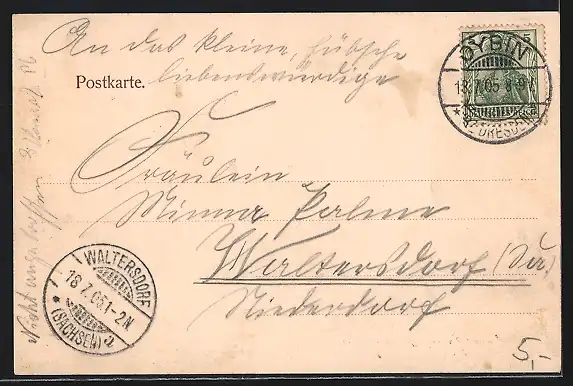 An das kleine, hübsche
liebenswürdige
Postkarte.
Fräulein
Minna Palme
Waltersdorf (Sa.)
Niederdorf
OYBIN
18.7.05 8-9
* DRESDEN
5
WALTERSDORF
18.7.05.1-2N.
* (SACHSEN)
5,-